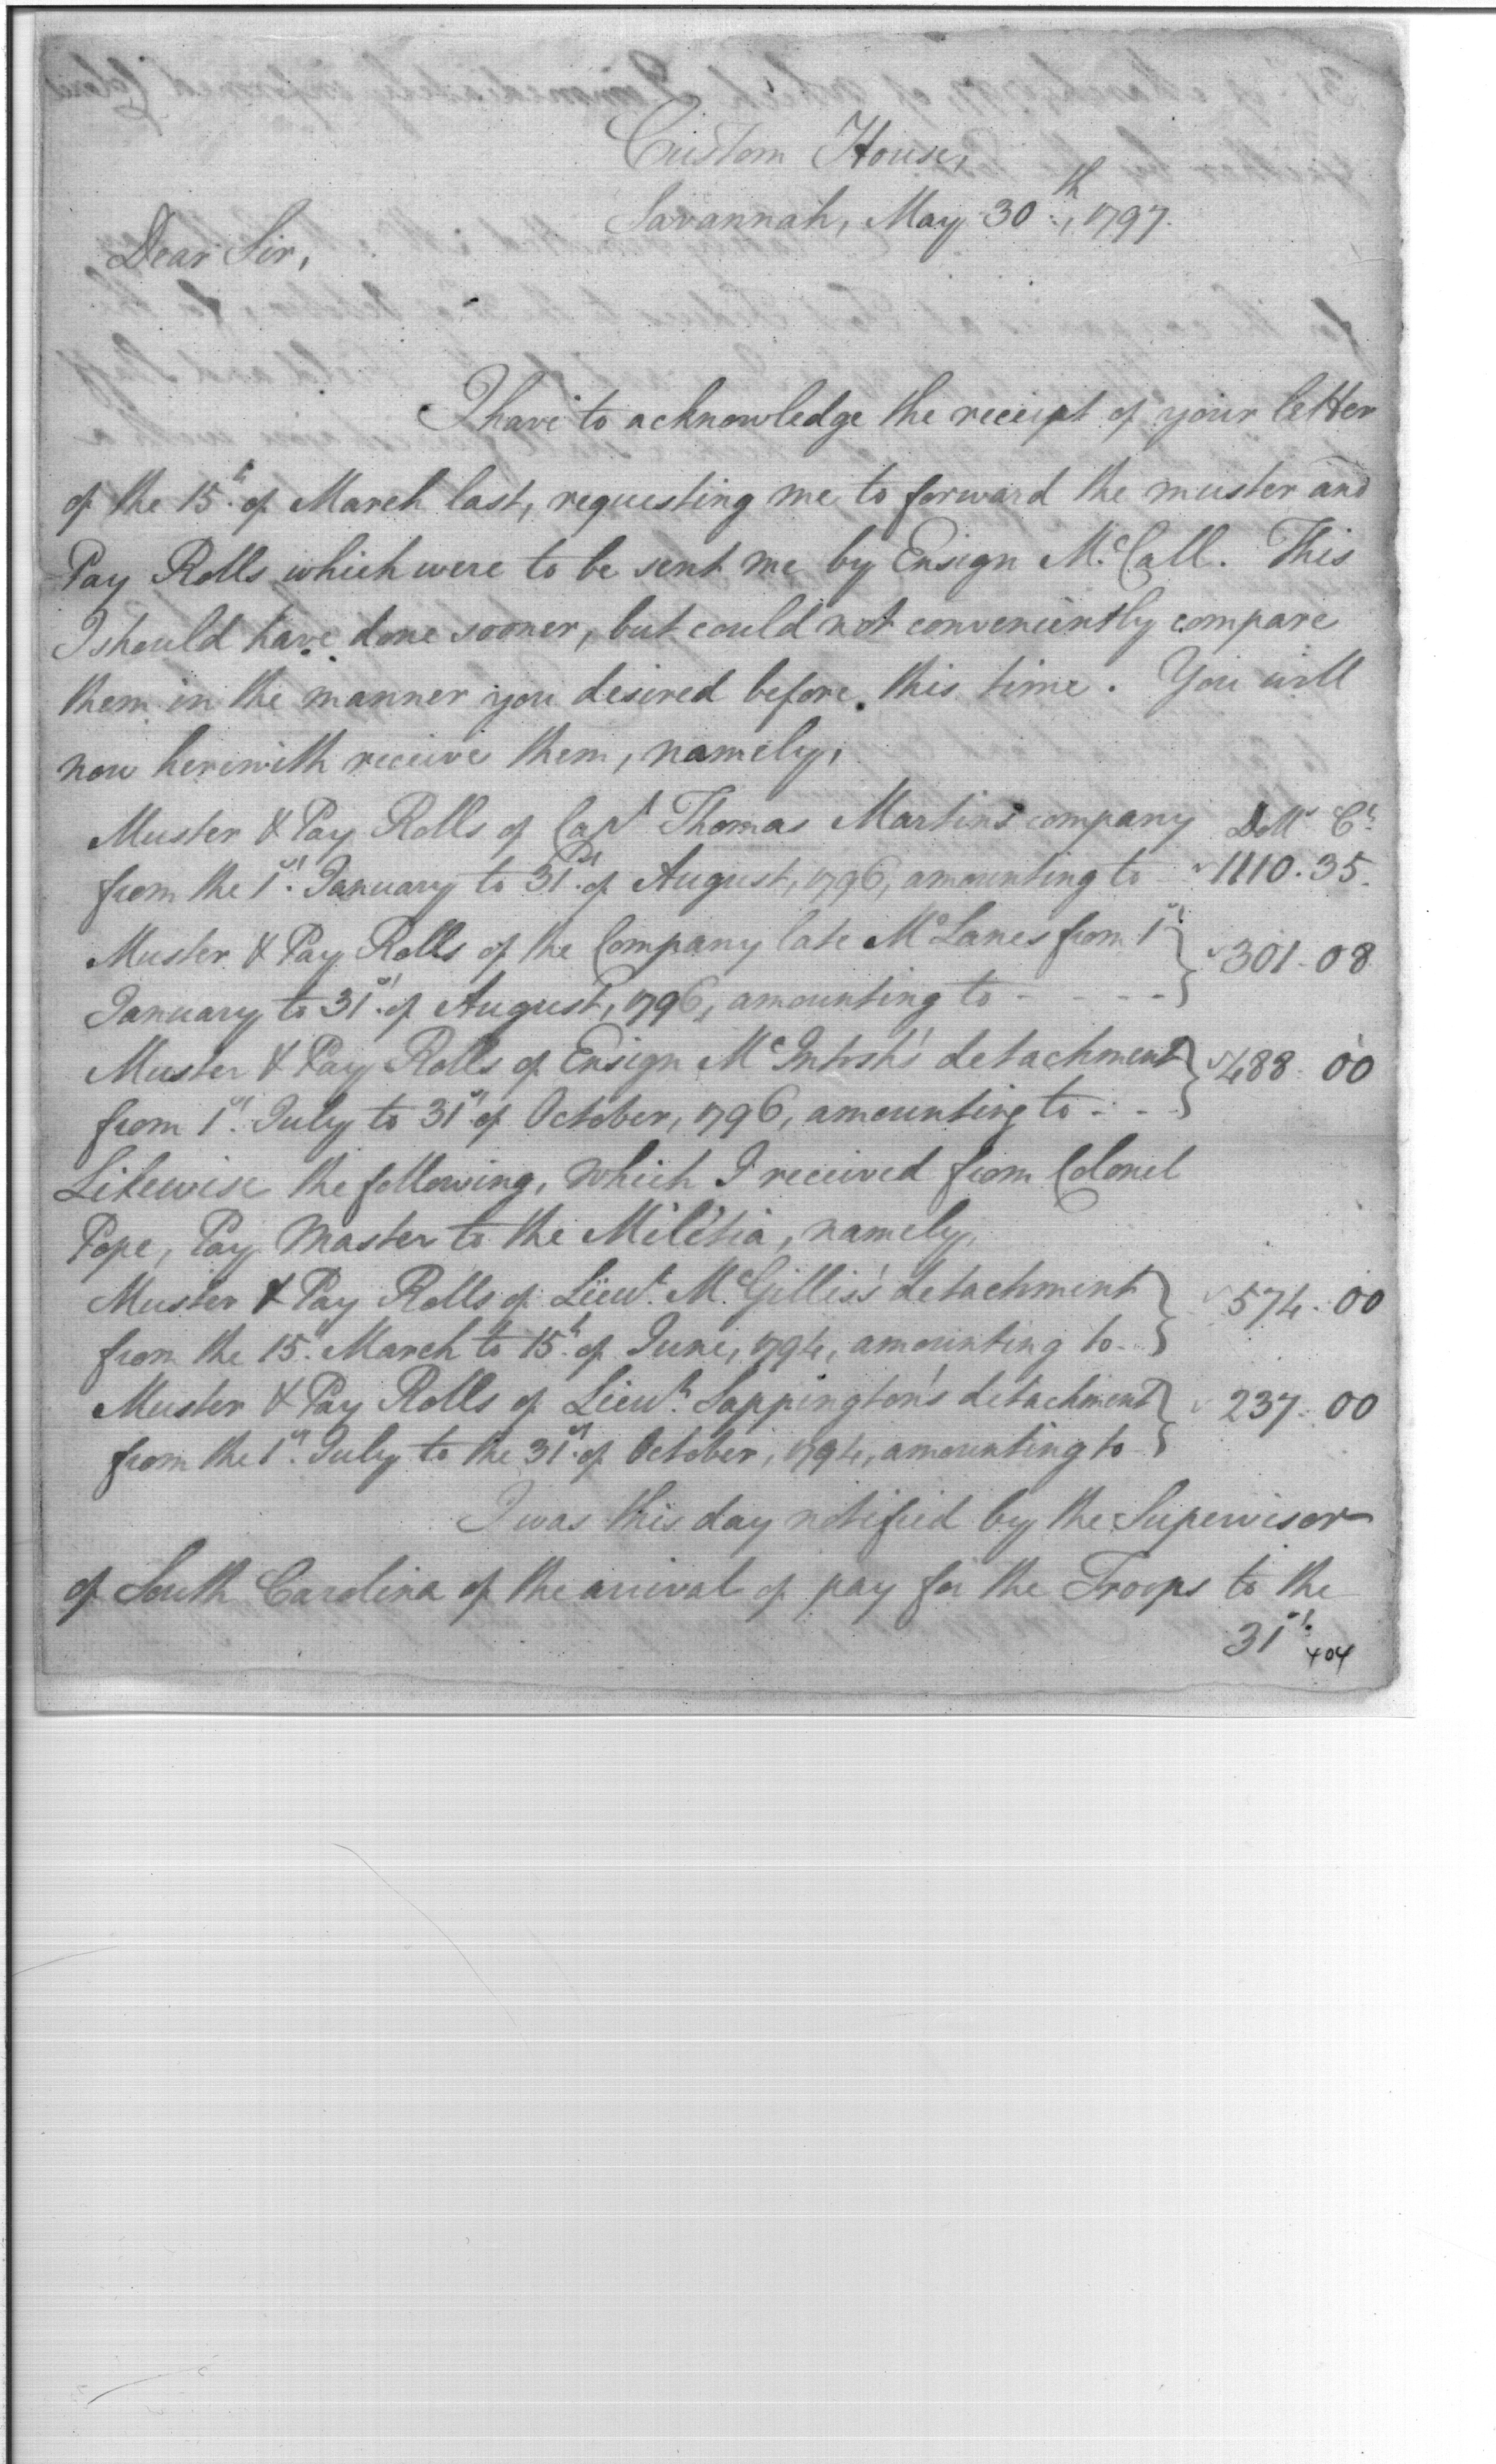 Custom House,
Savannah, May 30th, 1797.
Dear Sir,
I have to acknowledge the receipt of your letter
of the 15th of March last, requesting me to forward the muster and
Pay Rolls which were to be sent me by Ensign McCall. This
I should have done sooner, but could not conveniently compare
them in the manner you desired before this time. You will
now herewith receive them, namely,
Muster & Pay Rolls of Capt Thomas Martin's company Dolls Cts
from the 1st January to 31st of August, 1796, amounting to 1110.35.
Muster & Pay Rolls of the Company late McLanes from 1st } 301.08
January to 31st of August, 1796, amounting to - - - -
Muster & Pay Rolls of Ensign McIntosh's detachment } 488.00
from 1st July to 31st of October, 1796, amounting to - -
Likewise the following, which I received from Colonel
Pope, Pay Master to the Militia, namely,
Muster & Pay Rolls of Lieut. McGillis's detachment } 574.00
from the 15th March to 15th of June, 1794, amounting to -
Muster & Pay Rolls of Lieut. Sappington's detachment } 237.00
from the 1st July to the 31st of October, 1794, amounting to
I was this day notified by the Supervisor
of South Carolina of the arrival of pay for the Troops to the
31st
404